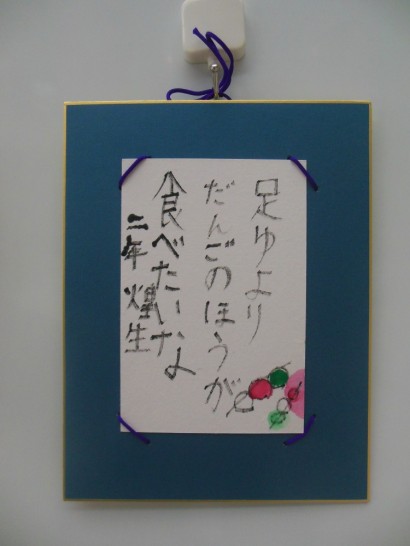 足ゆより
だんごのほうが
食べたいなよ
二年 煌生